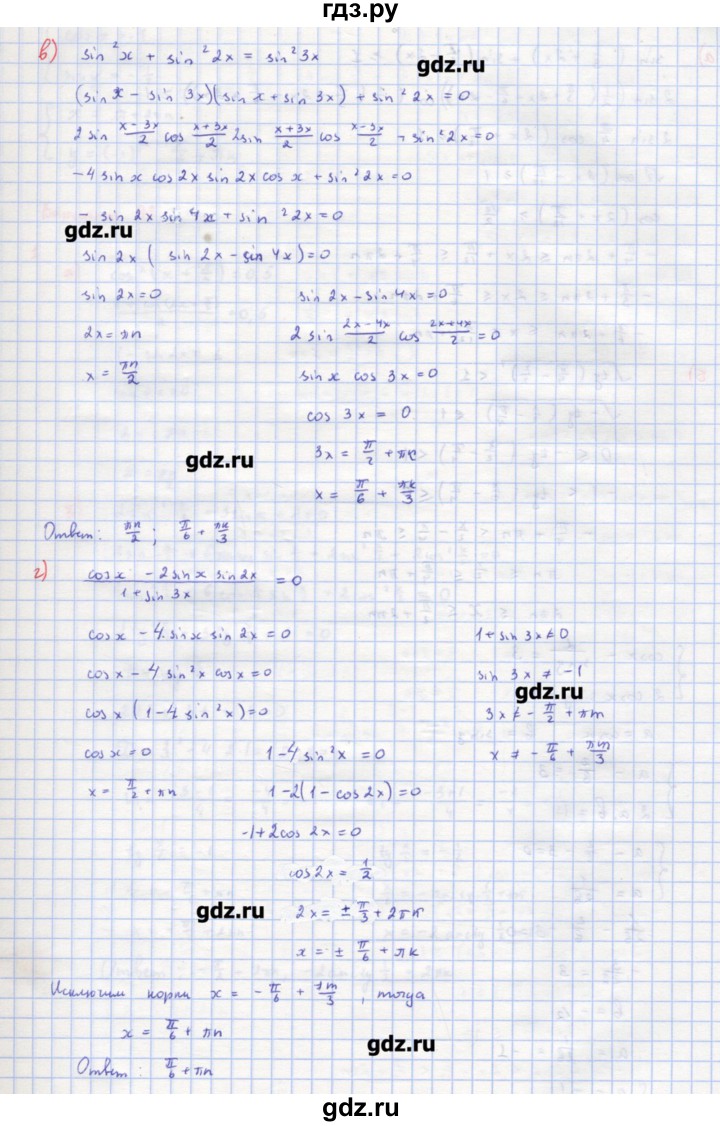 гдз.ру
в) sin²x + sin²2x = sin²3x
gdz.ru
(sin x - sin 3x)(sin x + sin 3x) + sin²2x = 0
2 sin (x-3x)/2 cos (x+3x)/2 2sin (x+3x)/2 cos (x-3x)/2 + sin²2x = 0
-4 sin x cos 2x sin 2x cos x + sin²2x = 0
- sin 2x sin 4x + sin²2x = 0
gdz.ru
sin 2x ( sin 2x - sin 4x) = 0
sin 2x = 0 sin 2x - sin 4x = 0
2x = πn 2 sin (2x-4x)/2 cos (2x+4x)/2 = 0
x = πn/2 sin x cos 3x = 0
cos 3x = 0
gdz.ru 3x = π/2 + πk
x = π/6 + πk/3
Ответ: πn/2 ; π/6 + πk/3
г) (cos x - 2 sin x sin 2x)/(1 + sin 3x) = 0
cos x - 4. sin x sin 2x = 0 1 + sin 3x ≠ 0
cos x - 4 sin²x cos x = 0 sin 3x ≠ -1
gdz.ru
cos x (1 - 4 sin²x) = 0 3x ≠ - π/2 + πm
cos x = 0 1 - 4 sin²x = 0 x ≠ - π/6 + πm/3
x = π/2 + πn 1 - 2(1 - cos 2x) = 0
-1 + 2cos 2x = 0
cos 2x = 1/2
gdz.ru 2x = ± π/3 + 2πk
x = ± π/6 + πk
Исключим корни x = - π/6 + πm/3 , тогда
x = π/6 + πn
gdz.ru
Ответ: π/6 + πn
gdz.ru